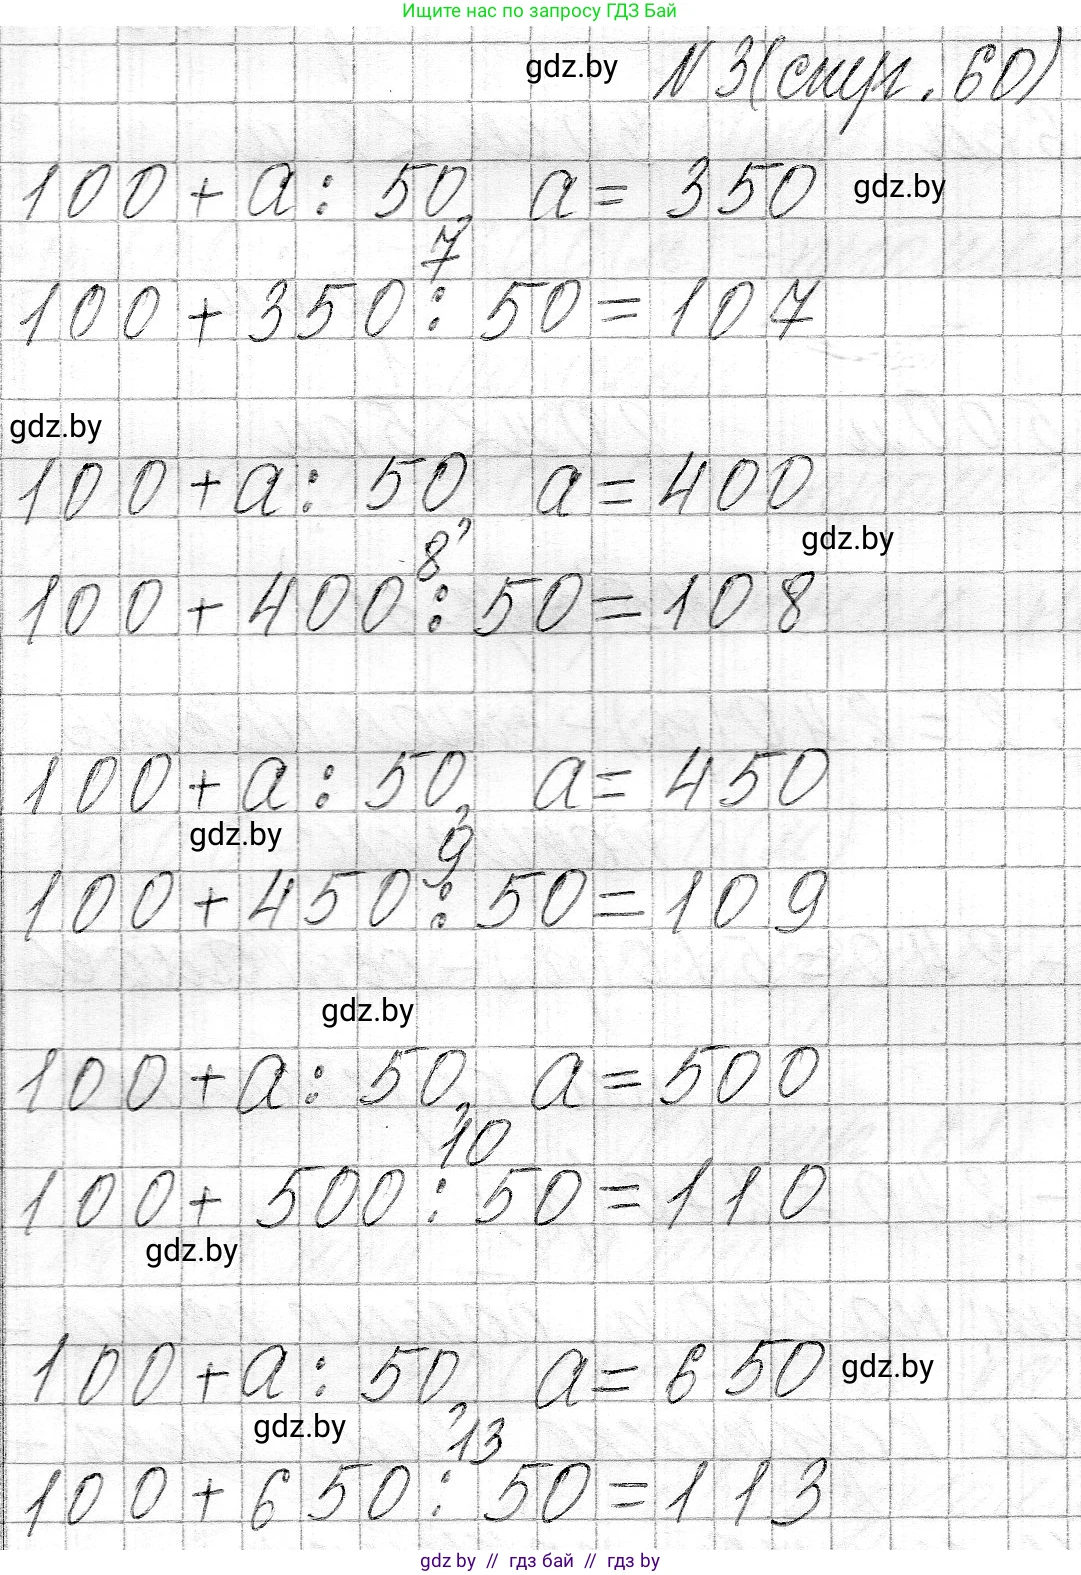 Ищите нас по запросу ГДЗ Бай
gdz.by № 3 (стр. 60)
100 + a : 50, a = 350 gdz.by
7
100 + 350 : 50 = 107
gdz.by
100 + a : 50, a = 400
8 gdz.by
100 + 400 : 50 = 108
100 + a : 50, a = 450
gdz.by 9
100 + 450 : 50 = 109
gdz.by
100 + a : 50, a = 500
10
100 + 500 : 50 = 110
gdz.by
100 + a : 50, a = 650 gdz.by
gdz.by 13
100 + 650 : 50 = 113
gdz by // гдз бай // гдз by